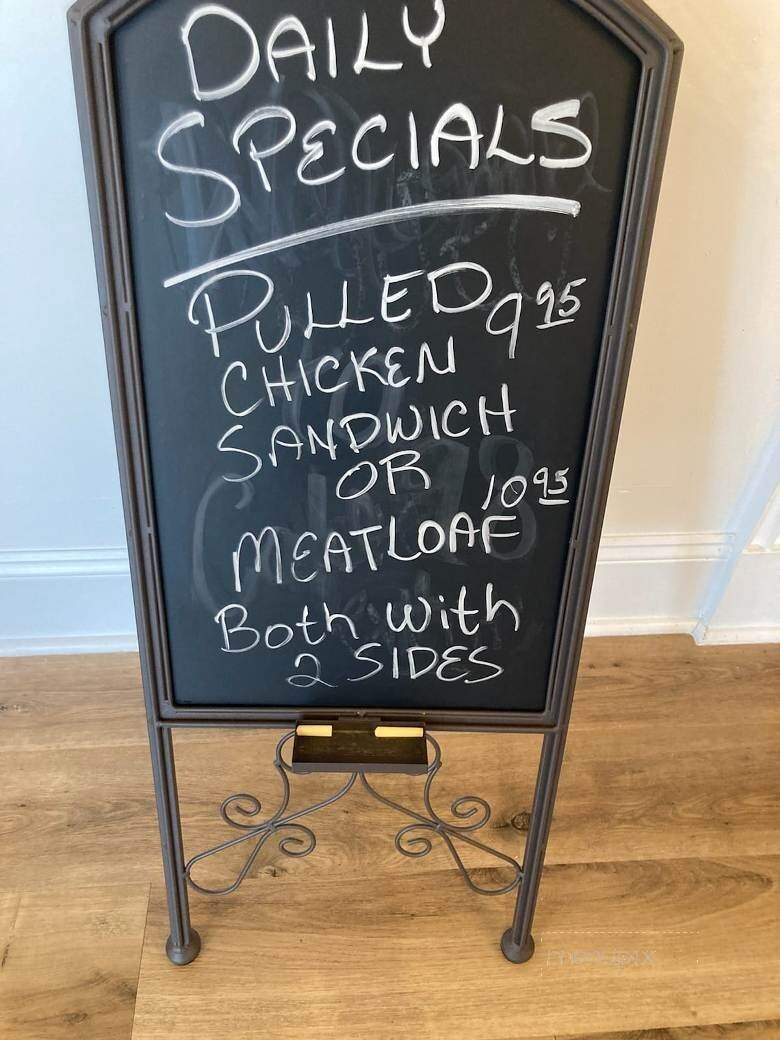 DAILY
SPECIALS
PULLED 9 95
CHICKEN
SANDWICH
OR
10 95
MEATLOAF
Both with
2 SIDES
menupix